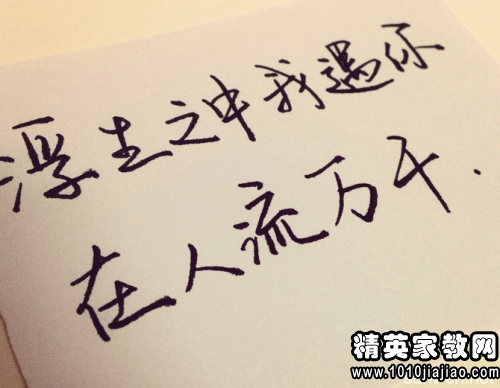 浮生之中我遇你
在人流万千.
精英家教网
www.1010jiajiao.com